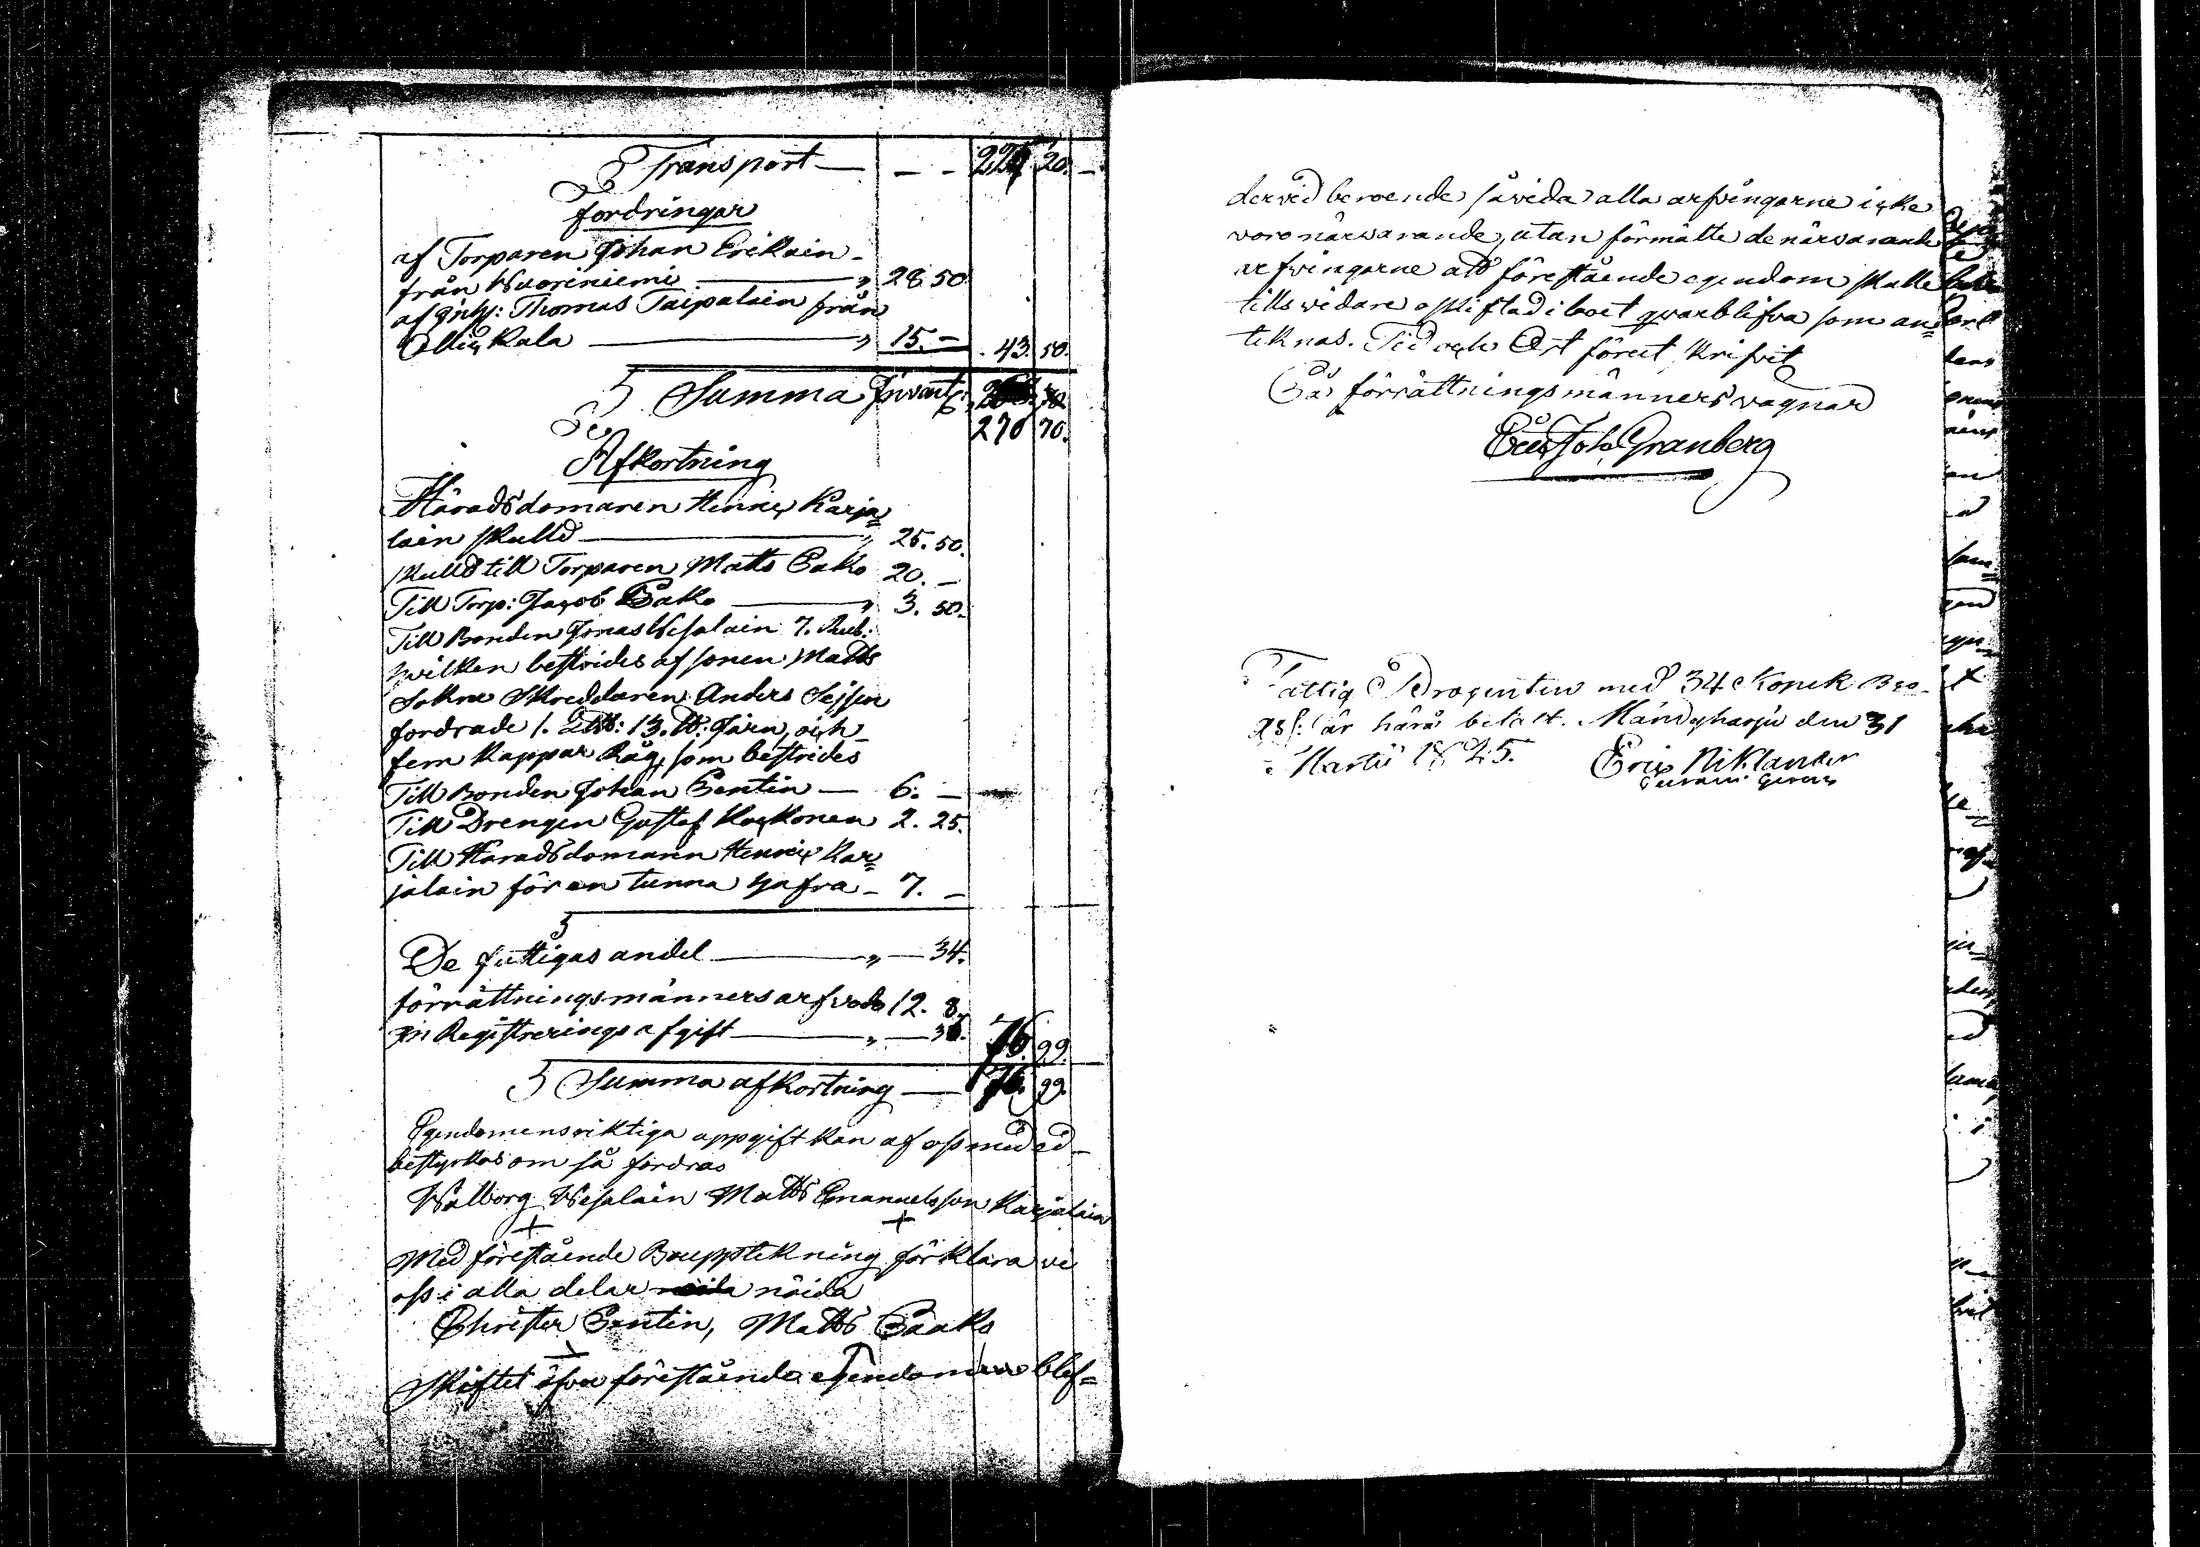 Transport — - - 227 20. -
fordringar
af Torparen Johan Erikain
från Wuoriniemi — " 28 50
af Inhs: Thomas Taipalain från
Ollickala — " 15. — 43. 50.
Summa Inventr: 
270 70.
Afkortning
Häradsdomaren Henric Karja=
lain skuld — " 25. 50.
skuld till Torparen Matts Pako 20. —
Till Torp: Jacob Pako — " 3. 50.
Till Bonden Jonas Wesalain 7. Rub:
hvilken bestrides af sonen Matts
Sokne Skreddaren Anders Seppen
fordrade 1. L℔: 13. ℔: Järn, och
fem kappar Råg, som bestrides
Till Bonden Johan Pentin — 6. —
Till Drengen Gustaf Kockonen 2. 25.
Till Häradsdomaren Henric Kar=
jalain för en tunna hafra - 7. —
De fattigas andel — " — 34.
förrättningsmänners arfvode 12. 8.
in Registrerings afgift — " — 36. 76. 99.
Summa afkortning — 76. 99.
Egendomens riktiga uppgift kan af oss med ed
bestyrkas om så fordras
Walborg Wesalain Matts Emanuelsson Karjalain
+ +
Med förestående Bouppteckning förklara vi
oss i alla delar nöida
Christer Pentin, Matts Paako
Skiftet öfver förestående egendomen blef=
dervid beroende såvida alla arfvingarne icke
voro närvarande, utan förmälte de närvarande
arfvingarne att förestående egendom skulle
tills vidare oskiftad i boet qvarblifva som an=
teknas. Tid och Ort förut skrifvit
På förrättningsmänners vägnar
Eric Joh. Granberg
Fattig Procenten med 34 Kopek B:co
Ass: är härå betalt. Mändyharju den 31
Martii 1825. Eric Niklander